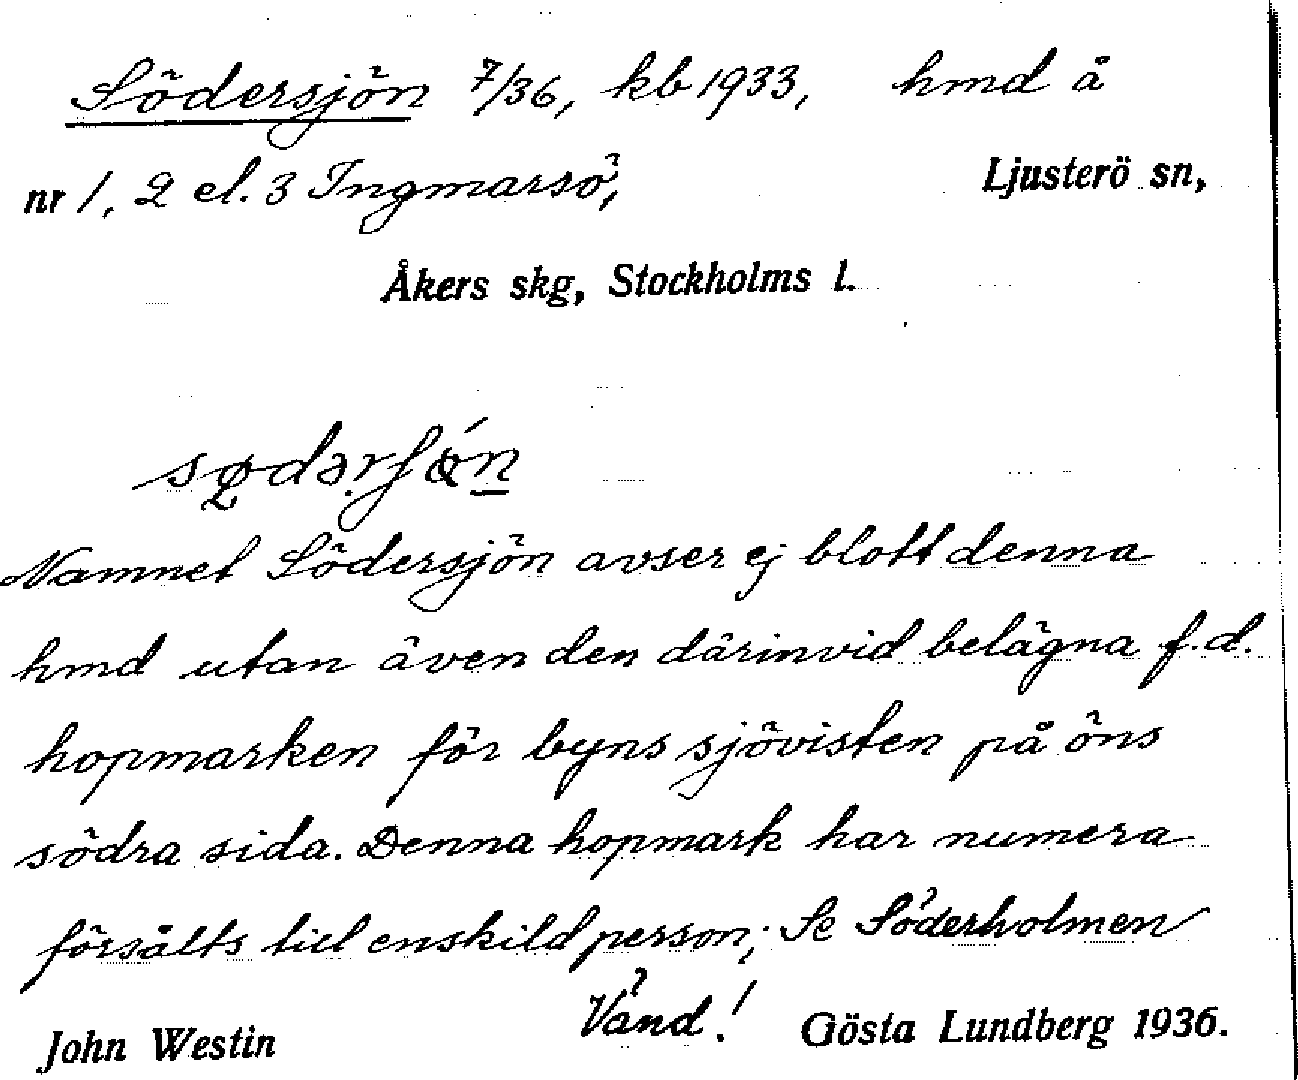 Södersjön 7/36, kb 1933, hmd å
nr 1, 2 el. 3 Ingmarsö, Ljusterö sn,
Åkers skg, Stockholms l.
Namnet Södersjön avser ej blott denna
hmd utan även den därinvid belägna f.d.
hopmarken för byns sjövisten på öns
södra sida. Denna hopmark har numera
försålts till enskild person; Se Söderholmen
Vänd!
John Westin Gösta Lundberg 1936.